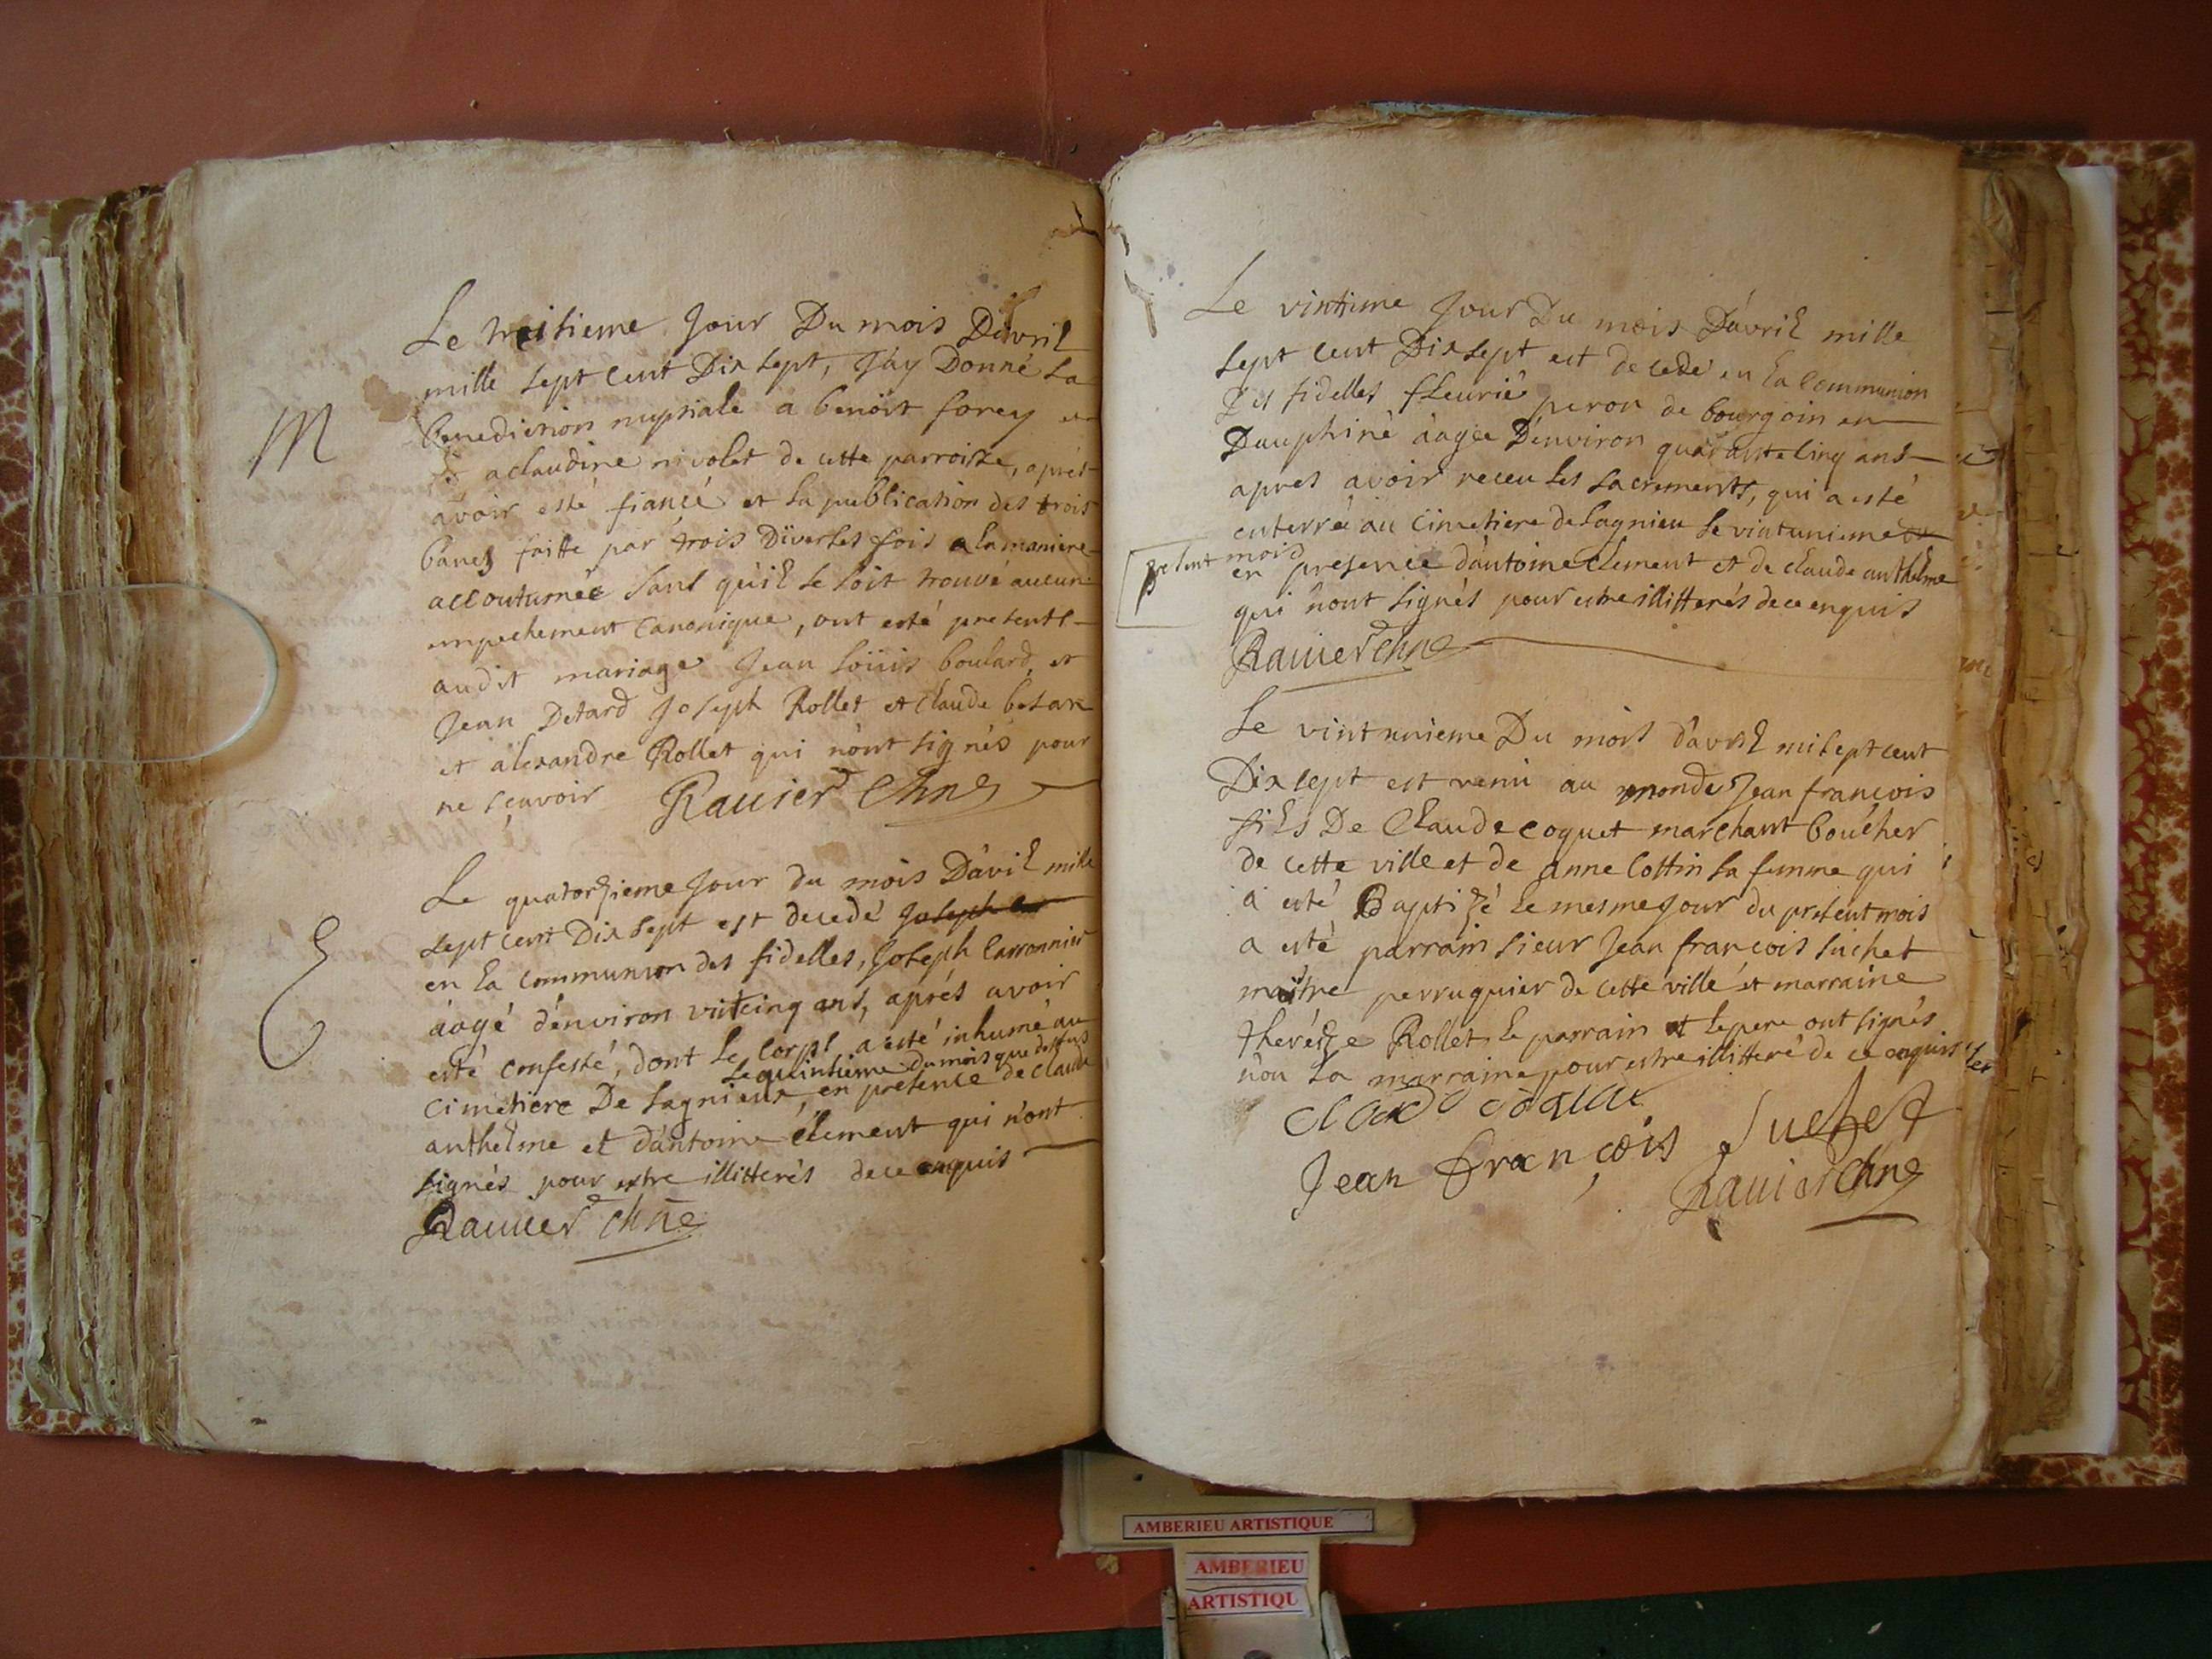 Le treitieme Jour Du mois Davril
mille sept cent Dix sept, J'ay Donné la
benediction nuptiale a benoit forey et
M
a claudine nivolet de cette parroisse, aprés
avoir esté fiancé et la publication des trois
bancs faitte par trois Diverses fois a la maniere
accoutumée sans qu'il se soit trouvé aucun
empechement canonique, ont esté presents
audit mariage Jean loüis boulard et
Jean Detard Joseph Rollet et claude besan
et alexandre Rollet qui n'ont signés pour
ne scavoir Rauier Chne
Le quatorzieme Jour du mois D'avil mille
E
sept cent Dix sept est decedé Joseph
en la communion des fidelles, Joseph Carronnier
âagé d'environ vintcinq ans, aprés avoir
esté confessé, dont le corps a esté inhumé au
le quintieme du mois que dessus
cimetiere De Lagnieux, en presence de claude
anthelme et d'antoine clement qui n'ont
signés pour estre illitterés de ce enquis
Rauier chne
Le vintieme Jour Du mois D'avril mille
sept cent Dix sept est decedé en la communion
des fidelles fleurie peron de bourgoin en
Dauphiné âagée D'environ quarante cinq ans
apres avoir receu les sacrements, qui a esté
enterrée au cimetiere de Lagnieu le vintunieme du
present mois
en presence d'antoine clement et de claude anthelme
qui n'ont signés pour estre illitterés de ce enquis
Rauier Chne
Le vintunieme Du mois d'avril mil sept cent
Dix sept est venu au monde Jean francois
fils De Claude coquet marchant boucher
de cette ville et de anne Cottin sa femme qui
a esté Baptizé le mesme Jour du present mois
a esté parrain sieur Jean francois suchet
maître perruquier de cette ville et marraine
therésze Rollet le parrain et le pere ont signés
non la marraine pour estre illitteré de ce enquis
Claude coquet
Jean François Suchet
Rauier Chne
AMBERIEU ARTISTIQUE
AMBERIEU
ARTISTIQU